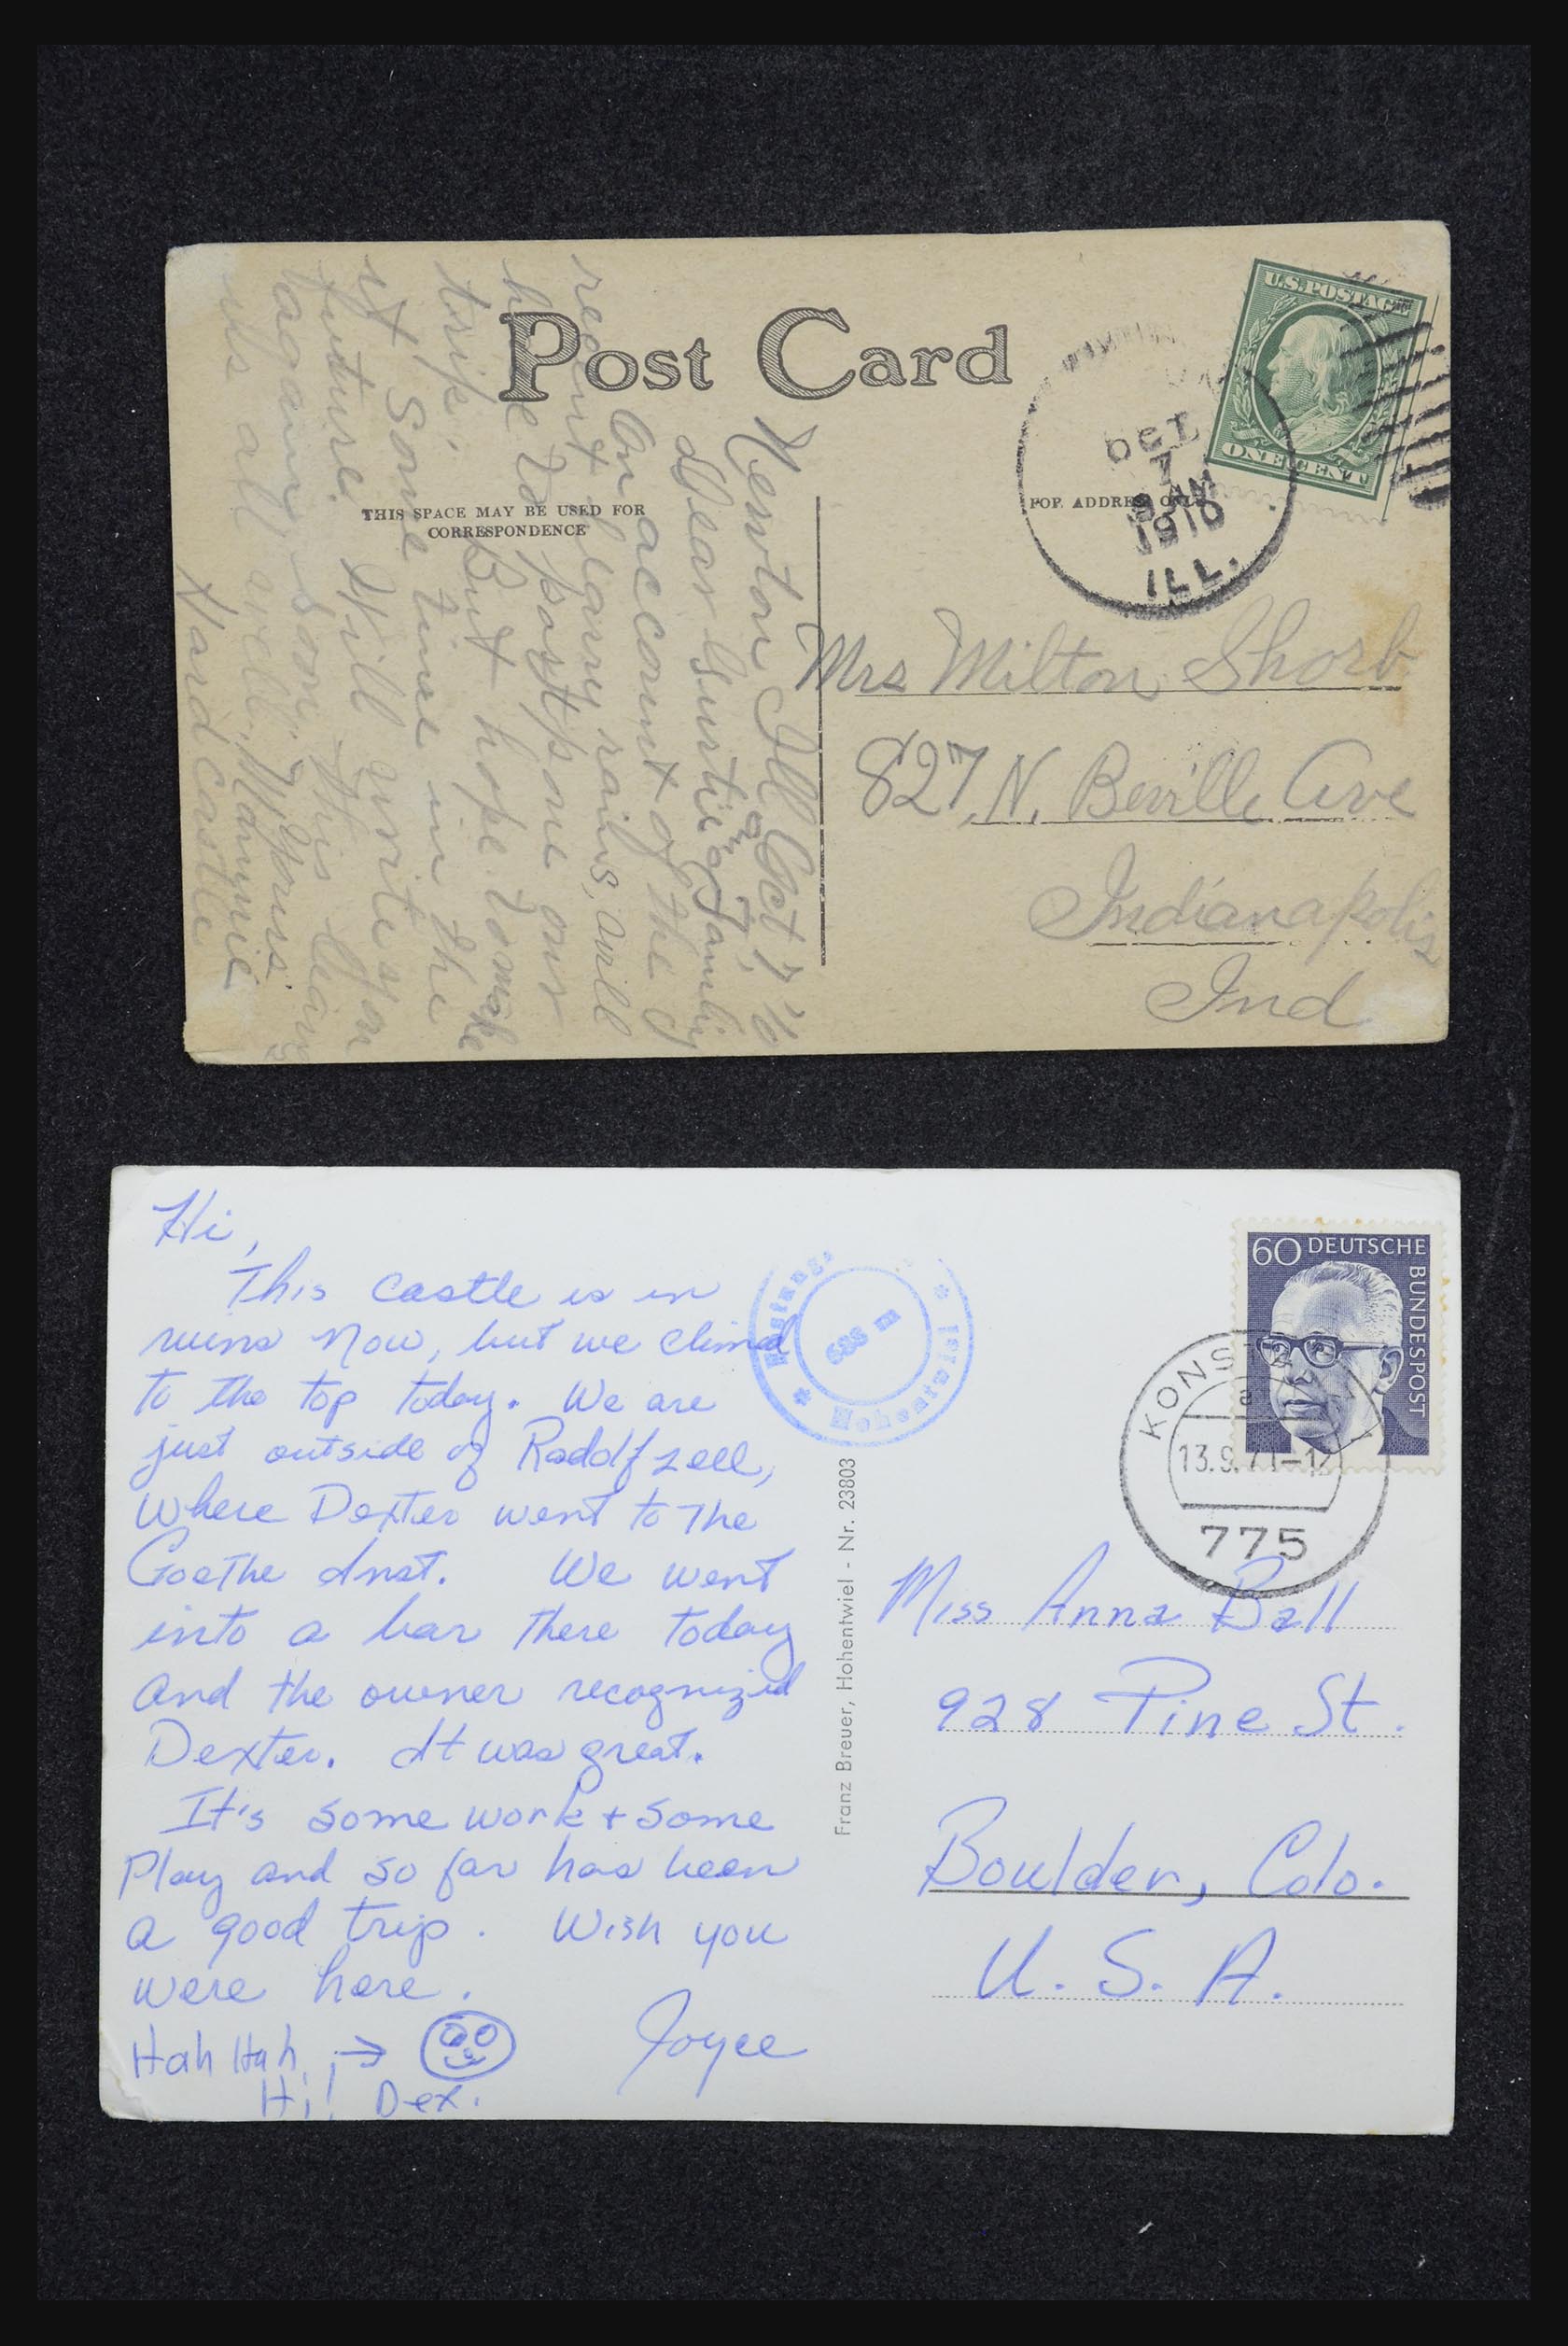 Post Card
THIS SPACE MAY BE USED FOR
CORRESPONDENCE
FOR ADDRESS ONLY
U.S. POSTAGE
ONE CENT
OCT
7
9 AM
1910
ILL.
Newton Ill Oct 7, '10
Dear Gurtie and Family
On account of the
recent heavy rains, will
have to postpone our
trip. But hope to make
it some time in the
future. Will write you
again soon. This leaves
us all well. Yours
Mammie
Hardcastle
Mrs Milton Shorb
827, N. Beville Ave
Indianapolis
Ind
Hi,
This castle is in
ruins now, but we climed
to the top today. We are
just outside of Radolfzell,
where Dexter went to the
Goethe Inst. We went
into a bar there today
and the owner recognized
Dexter. It was great.
It's some work + some
Play and so far has been
a good trip. Wish you
were here.
Joyce
Hah Hah →
Hi! Dex.
Festungs
688 m
Hohentwiel
Franz Breuer, Hohentwiel - Nr. 23803
60 DEUTSCHE
BUNDESPOST
KONST
a
13.9.71-12
775
Miss Anna Ball
928 Pine St.
Boulder, Colo.
U.S.A.